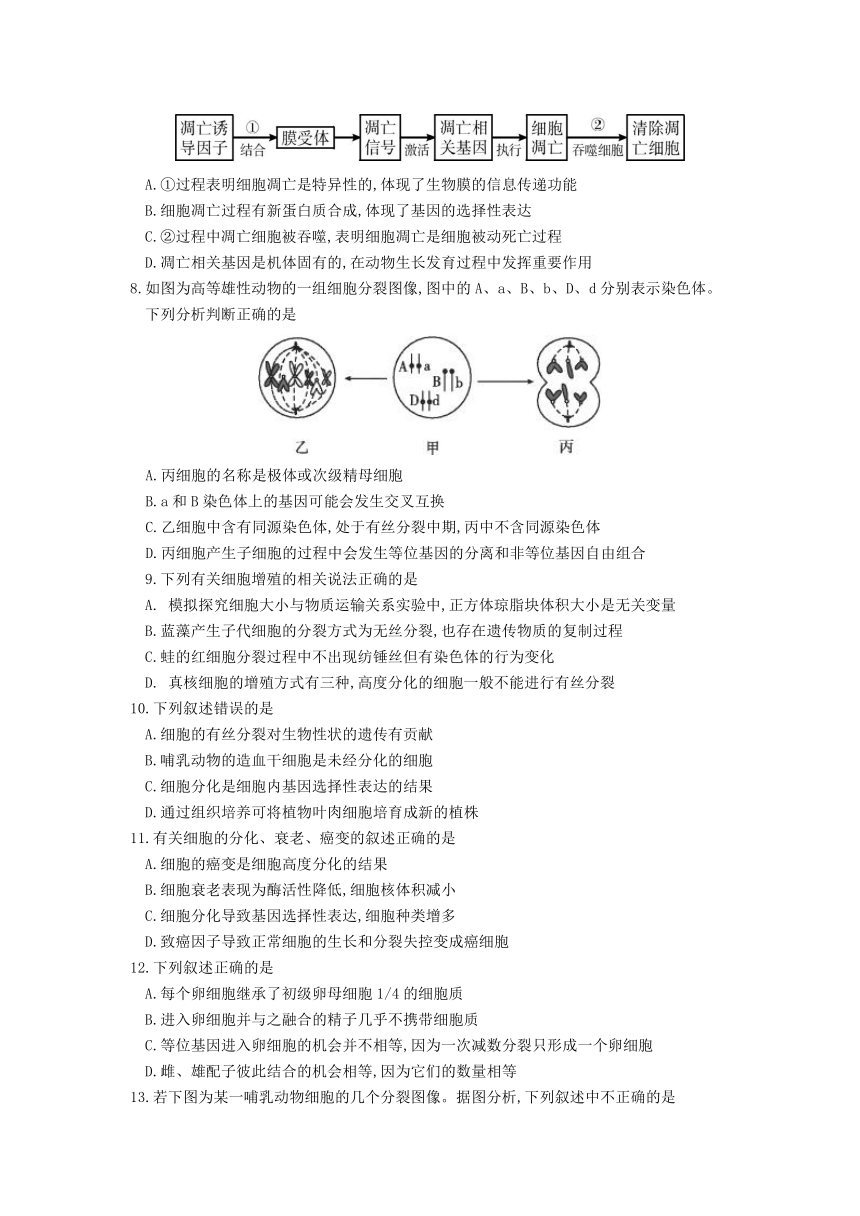 凋亡诱导因子 ①结合 膜受体 凋亡信号 激活 凋亡相关基因 执行 细胞凋亡 ②吞噬细胞 清除凋亡细胞
A.①过程表明细胞凋亡是特异性的,体现了生物膜的信息传递功能
B.细胞凋亡过程有新蛋白质合成,体现了基因的选择性表达
C.②过程中凋亡细胞被吞噬,表明细胞凋亡是细胞被动死亡过程
D.凋亡相关基因是机体固有的,在动物生长发育过程中发挥重要作用
8.如图为高等雄性动物的一组细胞分裂图像,图中的 A、a、B、b、D、d 分别表示染色体。
下列分析判断正确的是
A a
B b
D d
乙 甲 丙
A.丙细胞的名称是极体或次级精母细胞
B.a 和 B 染色体上的基因可能会发生交叉互换
C.乙细胞中含有同源染色体,处于有丝分裂中期,丙中不含同源染色体
D.丙细胞产生子细胞的过程中会发生等位基因的分离和非等位基因自由组合
9.下列有关细胞增殖的相关说法正确的是
A. 模拟探究细胞大小与物质运输关系实验中,正方体琼脂块体积大小是无关变量
B.蓝藻产生子代细胞的分裂方式为无丝分裂,也存在遗传物质的复制过程
C.蛙的红细胞分裂过程中不出现纺锤丝但有染色体的行为变化
D. 真核细胞的增殖方式有三种,高度分化的细胞一般不能进行有丝分裂
10.下列叙述错误的是
A.细胞的有丝分裂对生物性状的遗传有贡献
B.哺乳动物的造血干细胞是未经分化的细胞
C.细胞分化是细胞内基因选择性表达的结果
D.通过组织培养可将植物叶肉细胞培育成新的植株
11.有关细胞的分化、衰老、癌变的叙述正确的是
A.细胞的癌变是细胞高度分化的结果
B.细胞衰老表现为酶活性降低,细胞核体积减小
C.细胞分化导致基因选择性表达,细胞种类增多
D.致癌因子导致正常细胞的生长和分裂失控变成癌细胞
12.下列叙述正确的是
A.每个卵细胞继承了初级卵母细胞 1/4 的细胞质
B.进入卵细胞并与之融合的精子几乎不携带细胞质
C.等位基因进入卵细胞的机会并不相等,因为一次减数分裂只形成一个卵细胞
D.雌、雄配子彼此结合的机会相等,因为它们的数量相等
13.若下图为某一哺乳动物细胞的几个分裂图像。据图分析,下列叙述中不正确的是